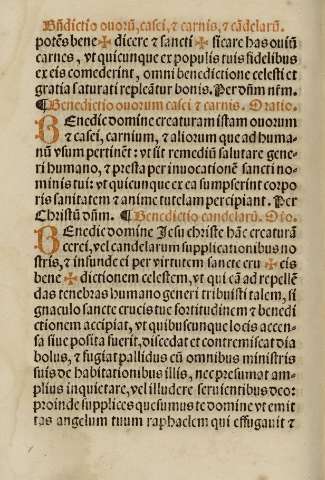 Bñdictio ovorũ, casei, ⁊ carnis, ⁊ cãdelarũ.
potẽs bene ✠ dicere ⁊ sancti ✠ ficare has oviũ
carnes, vt quicunque ex populis tuis fidelibus
ex eis comederint, omni benedictione celesti et
gratia saturati repleãtur bonis. Per dñm nr̃m.
¶ Benedictio ouorum casei ⁊ carnis. Oratio.
BEnedic domine creaturam istam ouorum
⁊ casei, carnium, ⁊ aliorum que ad huma-
nũ vsum pertinẽt: vt sit remediũ salutare gene
ri humano, ⁊ presta per inuocationẽ sancti no-
minis tui: vt quicunque ex ea sumpserint corpo
ris sanitatem ⁊ anime tutelam percipiant. Per
Christũ dñm. ¶ Benedictio candelarũ. Oro.
BEnedic domine Jesu christe hãc creaturã
cerei, vel candelarum supplicationibus no
stris, ⁊ infunde ei per virtutem sancte cru ✠ cis
bene ✠ dictionem celestem, vt qui eã ad repellẽ
das tenebras humano generi tribuisti talem, si
gnaculo sancte crucis tue fortitudinem ⁊ benedi
ctionem accipiat, vt quibuscunque locis accen-
sa siue posita fuerit, discedat et contremiscat dia
bolus, ⁊ fugiat pallidus cũ omnibus ministris
suis de habitationibus illis, nec presumat am-
plius inquietare, vel illudere seruientibus deo:
proinde supplices quesumus te domine vt emit
tas angelum tuum raphaelem qui effugauit ⁊